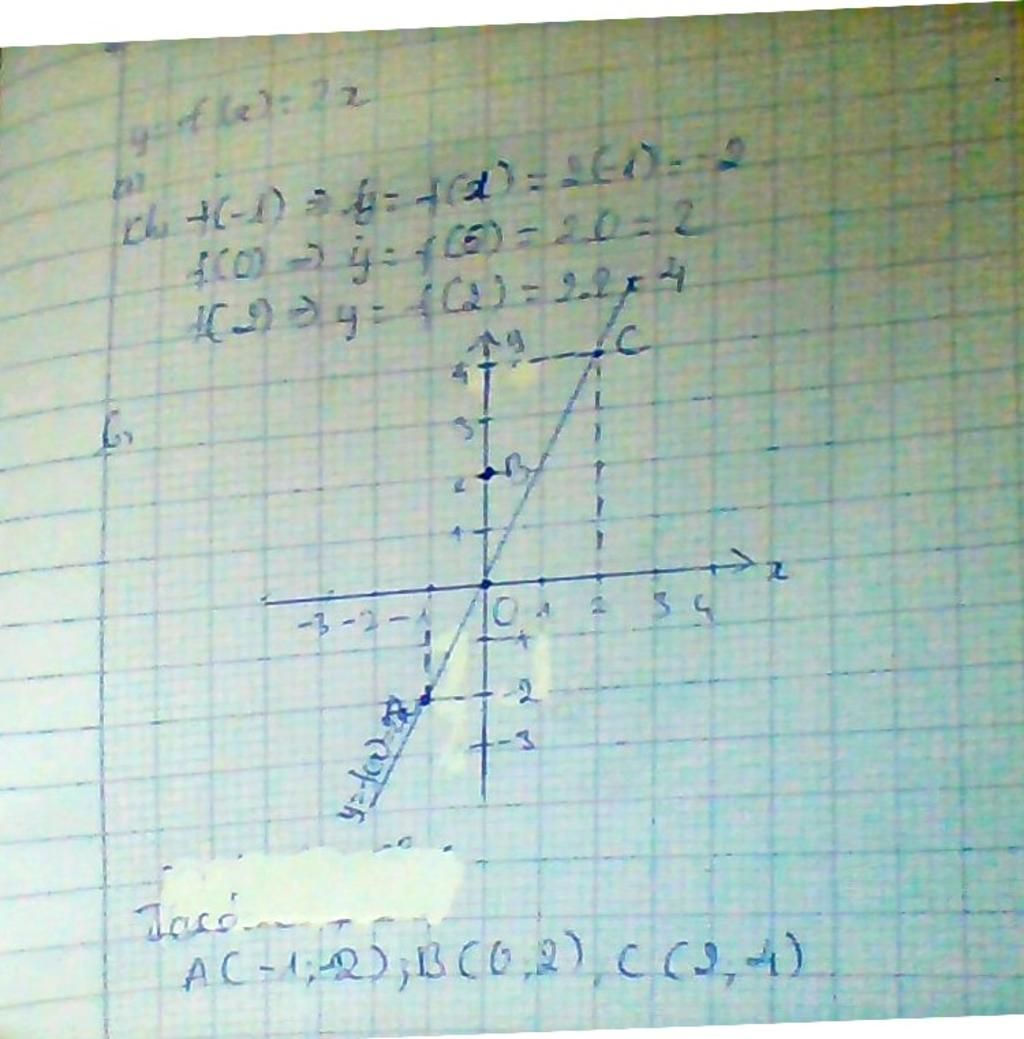 y = f(x) = 2x
a,
Ch, f(-1) ⇒ y = f(x) = 2(-1) = -2
f(0) ⇒ y = f(0) = 2.0 = 2
f(2) ⇒ y = f(2) = 2.2 = 4
y
4 C
3
b,
2 B
1
x
-3 -2 -1 O 1 2 3 4
-1
A -2
-3
y = f(x) = 2x
A(-1; -2), B(0, 2), C(2, 4)